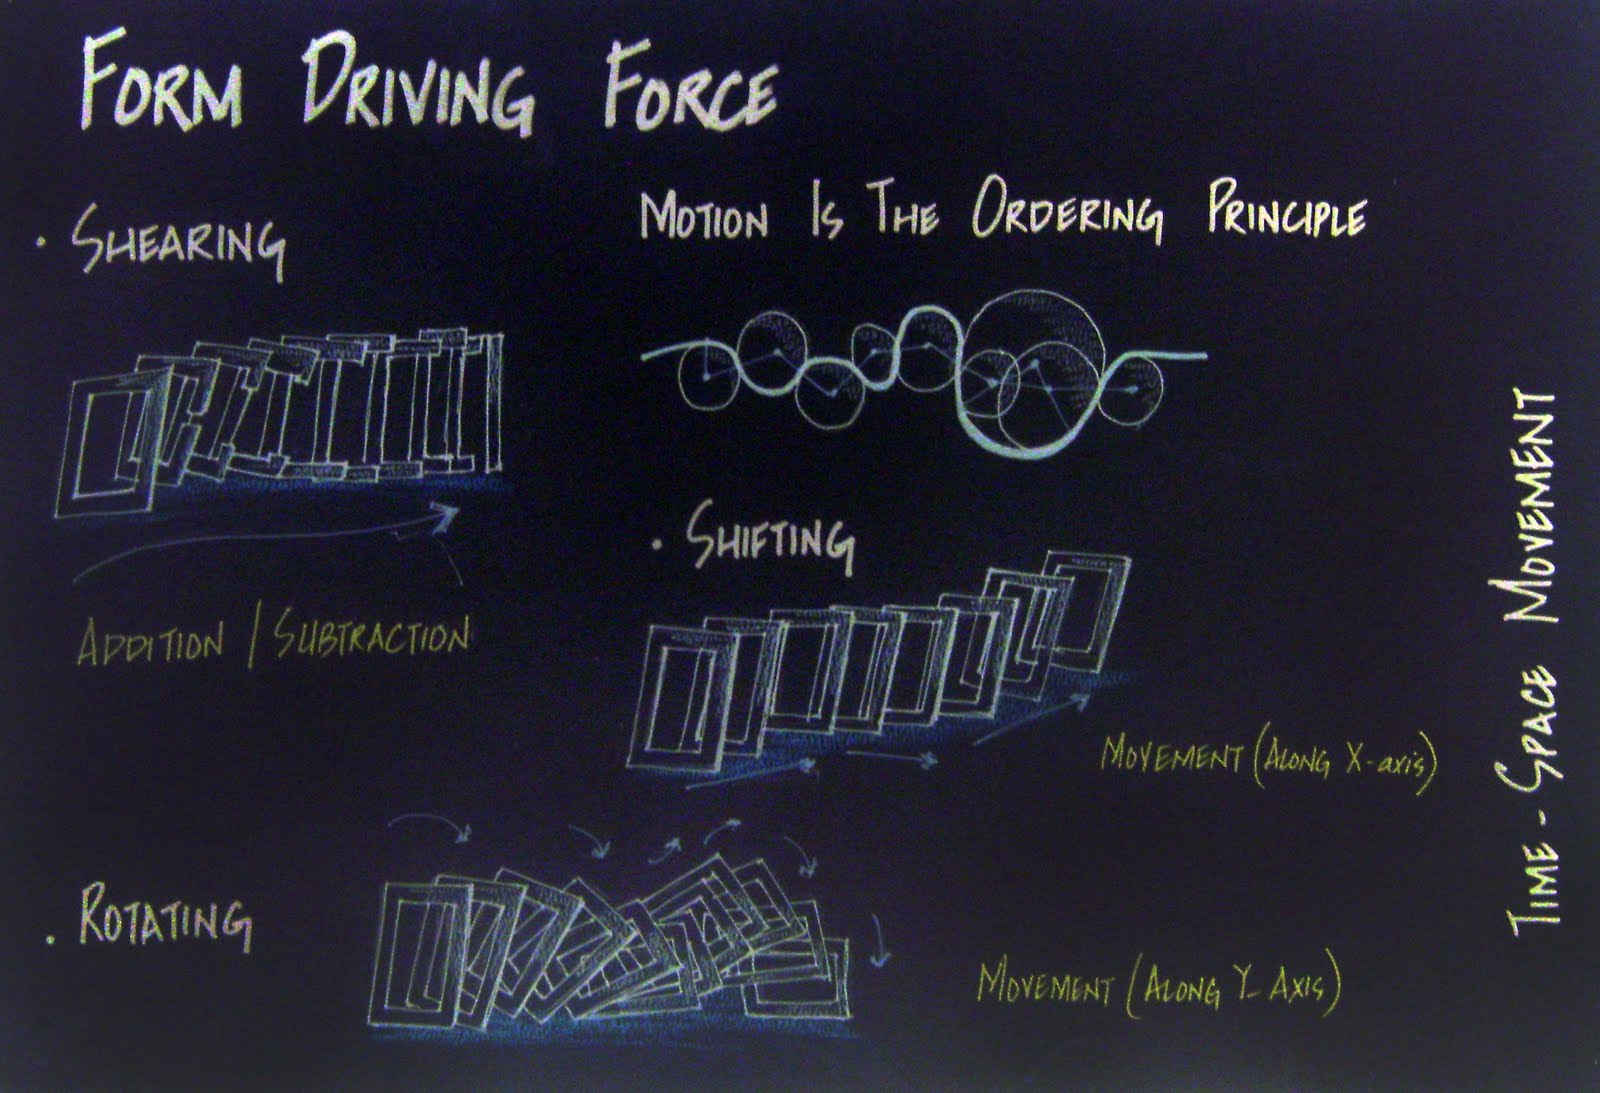 FORM DRIVING FORCE
• SHEARING
MOTION IS THE ORDERING PRINCIPLE
• SHIFTING
ADDITION / SUBTRACTION
MOVEMENT (ALONG X-axis)
• ROTATING
MOVEMENT (ALONG Y-AXIS)
TIME - SPACE MOVEMENT